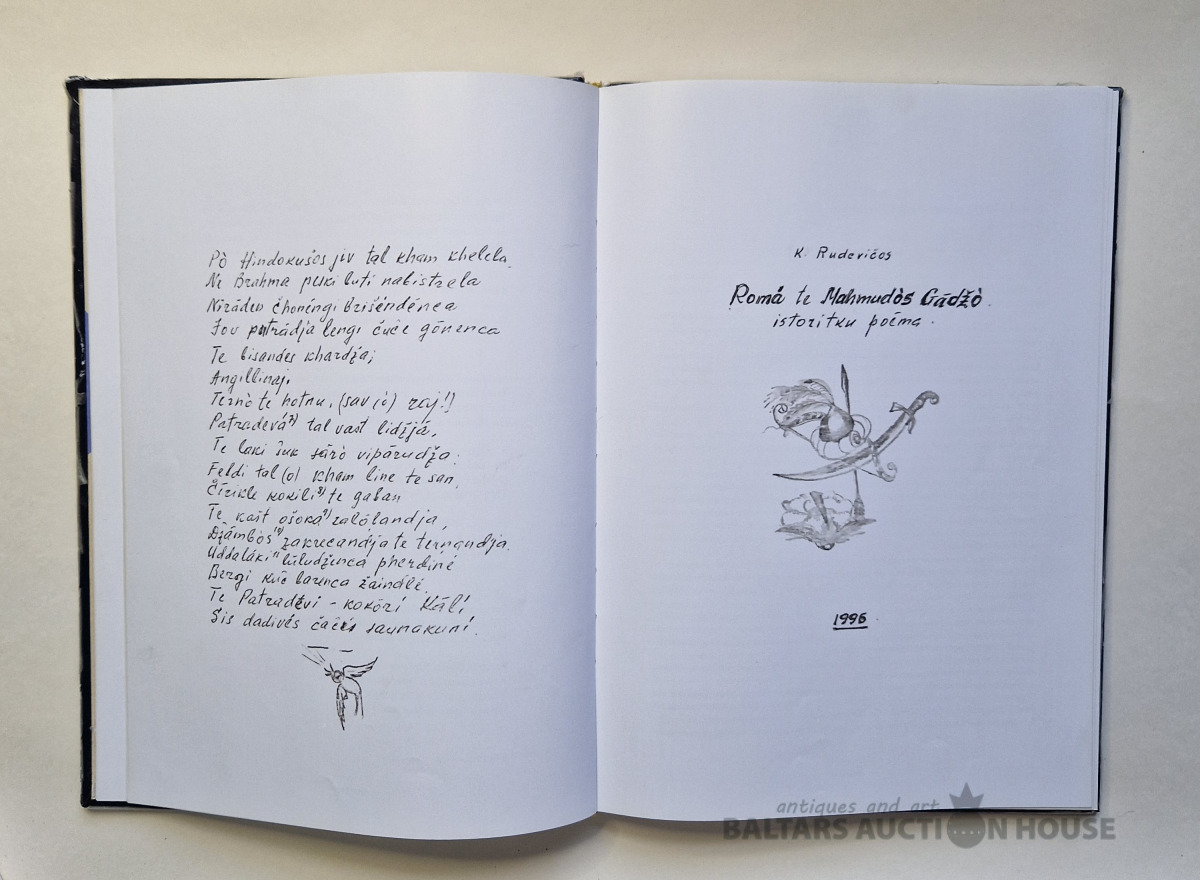 Pò Hindokušos jiv tal kham khelela
Ne Brahma puki buti nabistrela
Nirādeo Čhonéngi brišéndénca
Jov putrádja lengi čuče gónenca
Te bisandes khardža;
Angíllinaj.
Ternò te hotnu, (sav (i) raj!)
Patradevá⁷⁾ tal vast lidžjá,
Te laki šuk sáró vipárudža.
Feldi tal (o) kham line te san.
Čirikle kokili⁸⁾ te gaban
Te kašt ošoka⁹⁾ zalólandja,
Džámbòs¹⁰⁾ zakrecandja te ternandja.
Uddaláki¹¹ luludženca pherdiné
Bergi kuč barenca žaindlé.
Te Patradévi - kokóri Kálí
Sis dadivés čačés saunakuní.
K. Rudevičos
Romá te Mahmudòs Gádžò
istoritku poéma.
1996
antiques and art
BALTARS AUCTION HOUSE